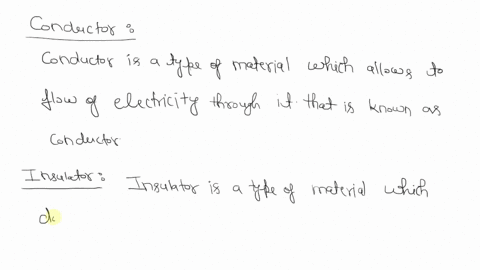 Conductor :
Conductor is a type of material which allows to
flow of electricity through it. that is known as
conductor
Insulator : Insulator is a type of material which
d